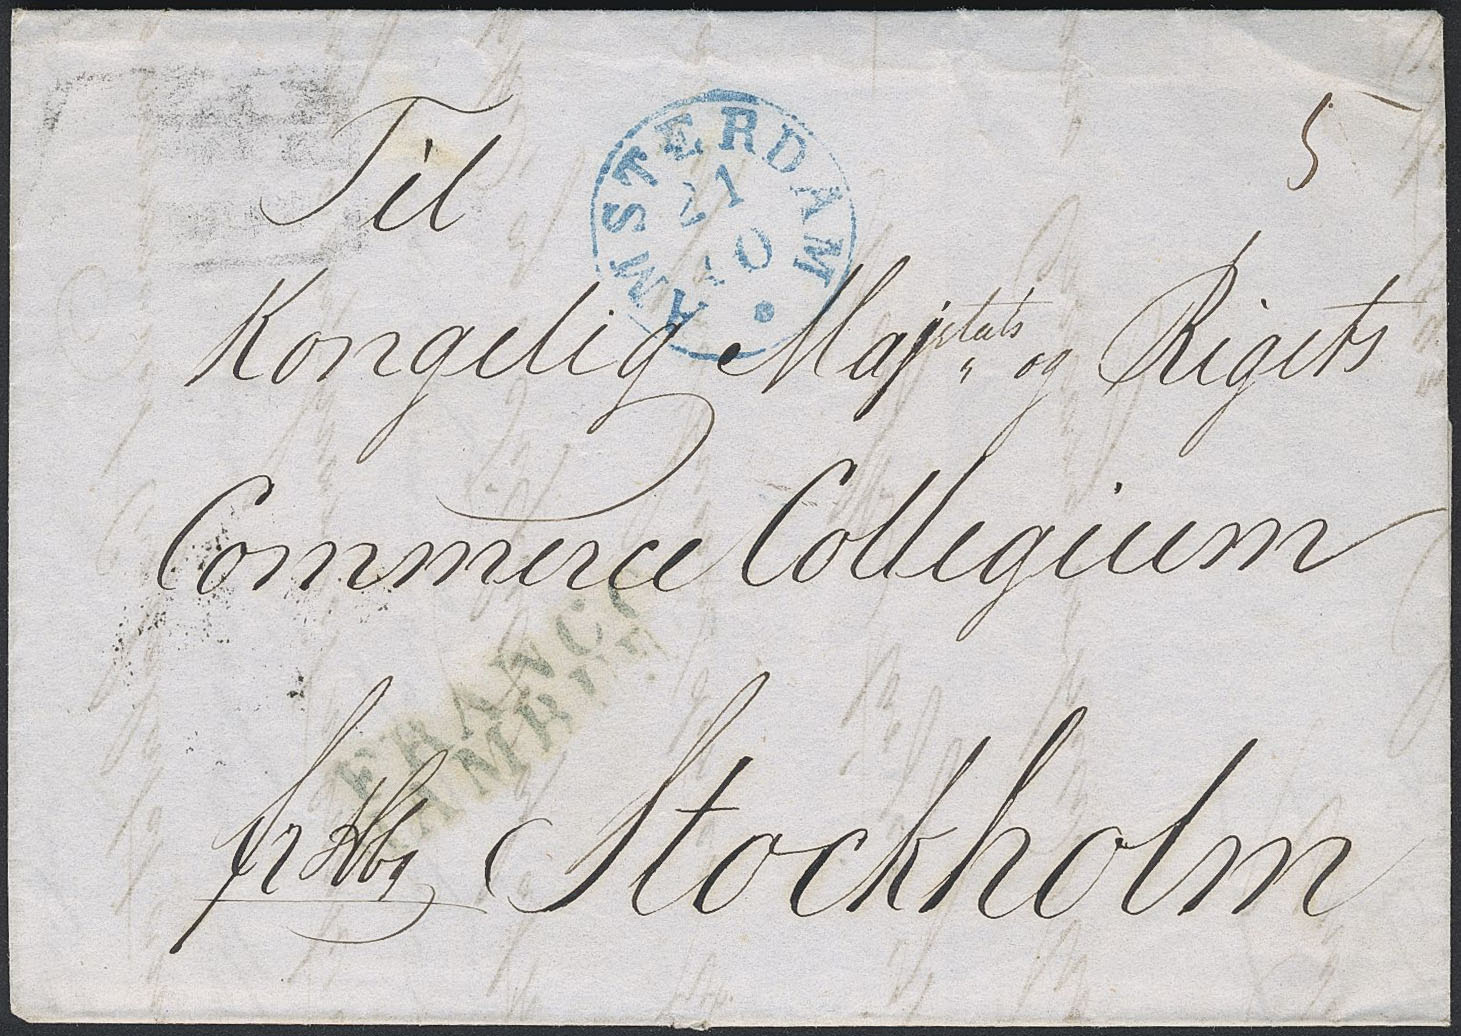 5
AMSTERDAM
21
10
Til
Kongelig Majjetäts og Rigets
Commerce Collegium
FRANCO
fr Hbg Stockholm